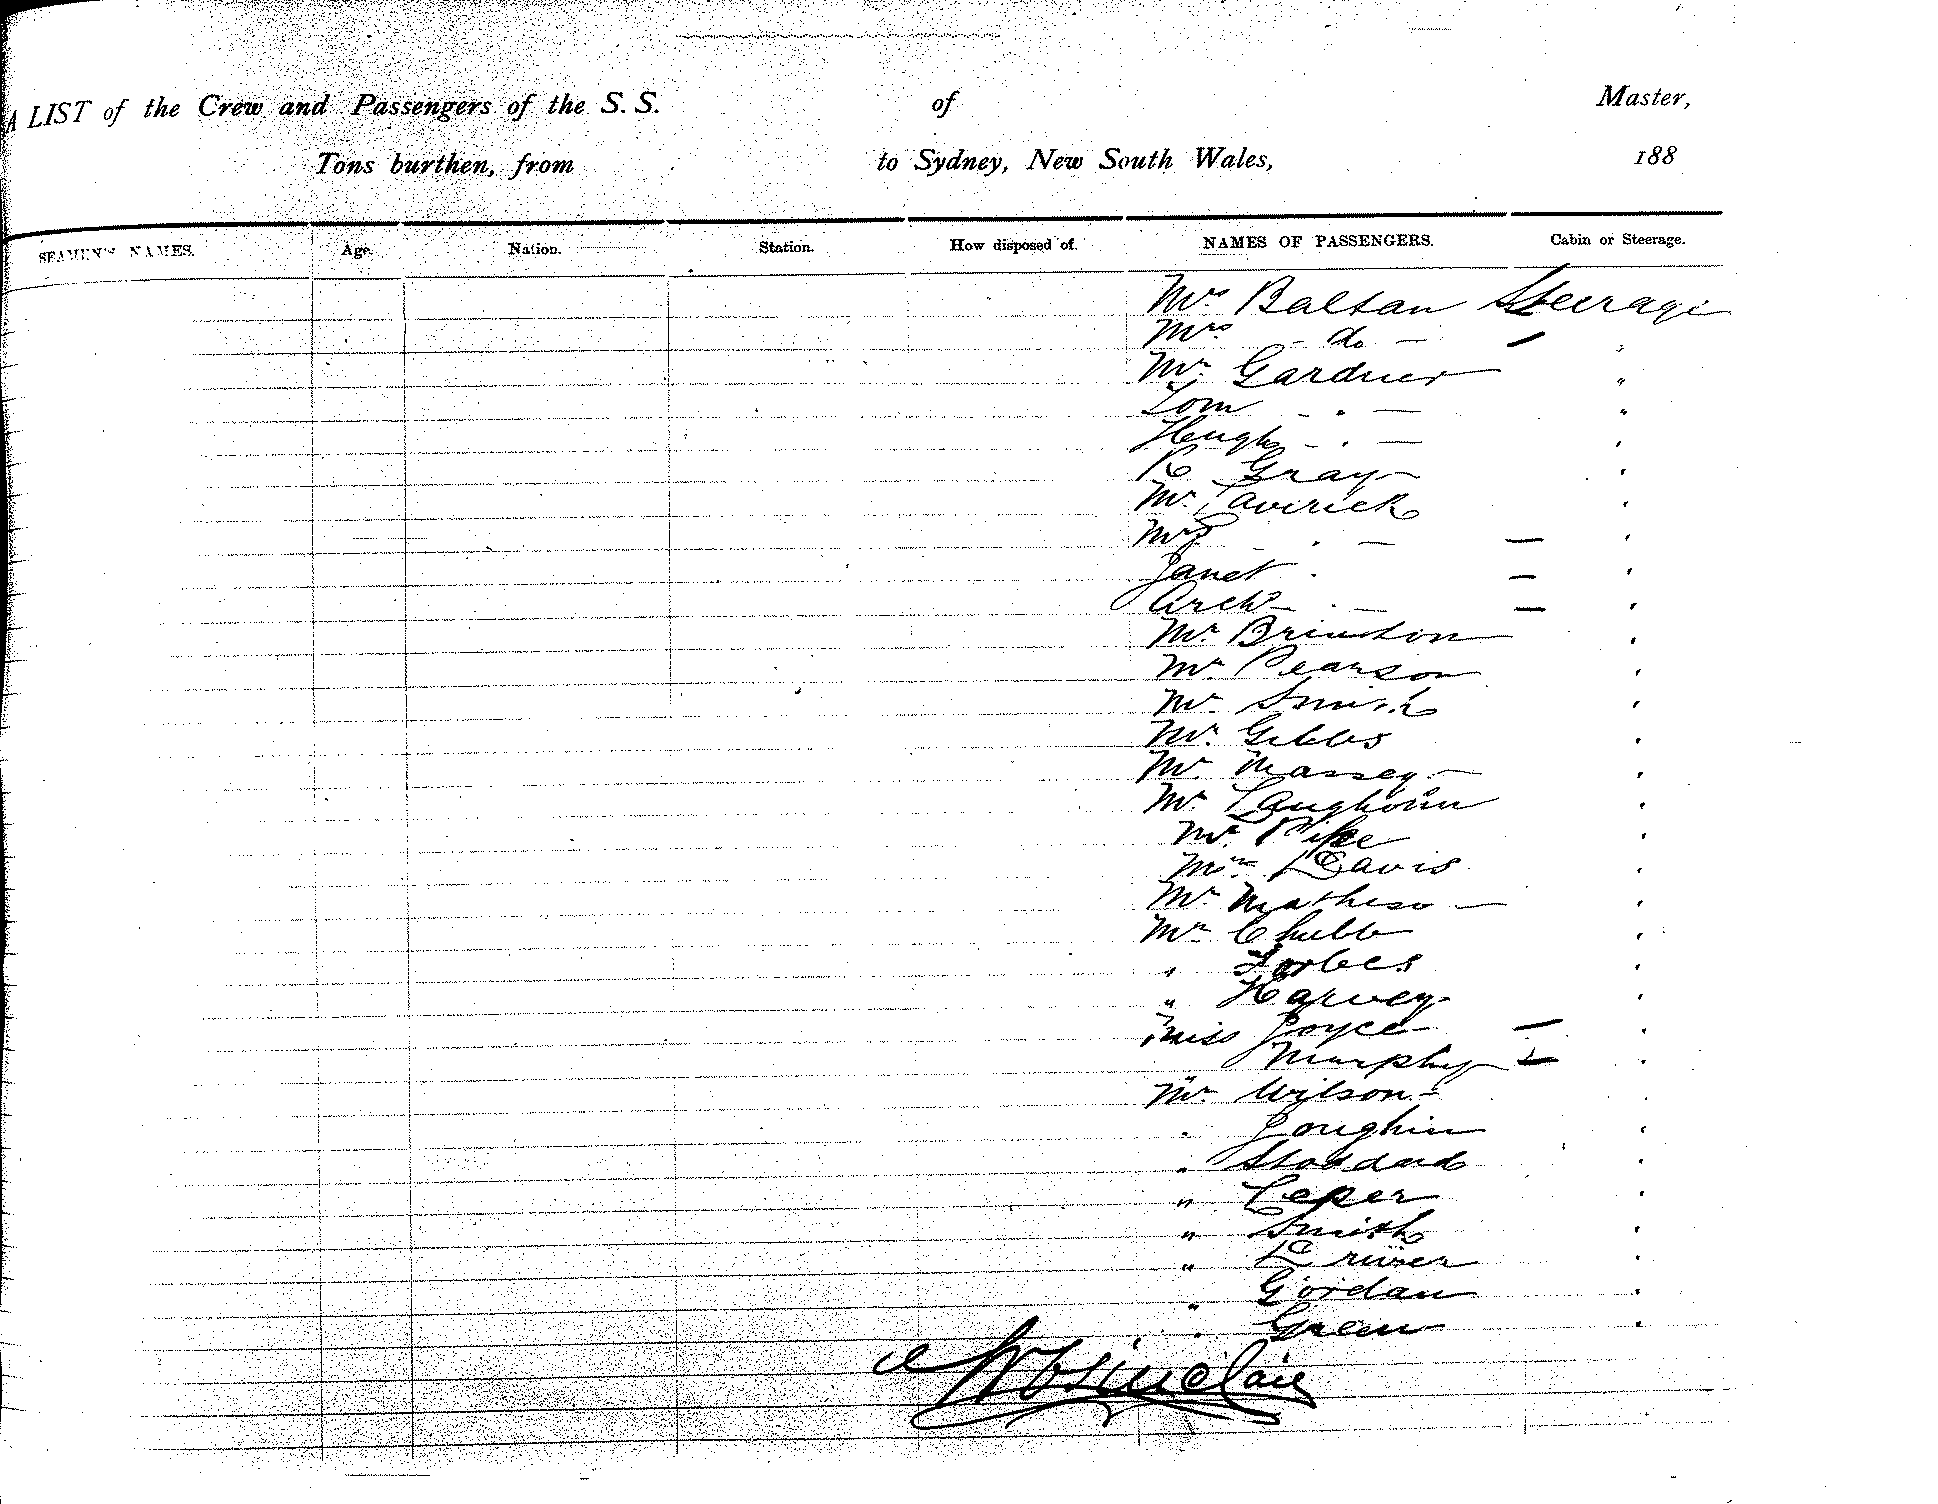 A LIST of the Crew and Passengers of the S. S. of Master,
Tons burthen, from to Sydney, New South Wales, 188
SEAMEN'S NAMES. Age. Nation. Station. How disposed of. NAMES OF PASSENGERS. Cabin or Steerage.
Mr. Baltan Steerage
Mrs - do - "
Mr. Gardner "
Tom - " - "
Heugh - " - "
R Gray "
Mr. Laverick "
Mrs " - "
Janet " "
Arch " - "
Mr. Brinton "
Mr Pearson "
Mr Smith "
Mr. Gibbs "
Mr Massey "
Mr. Langhorn "
Mr. Pike "
Davis "
Mr Matheso "
Mr Chubb "
" Forbes "
" Harvey "
Miss Joyce "
" Murphy "
Mr Wilson "
" Loughin "
" Stoddard "
" Leper "
" Smith "
" Driver "
" Gordan "
" Green "
Sinclair